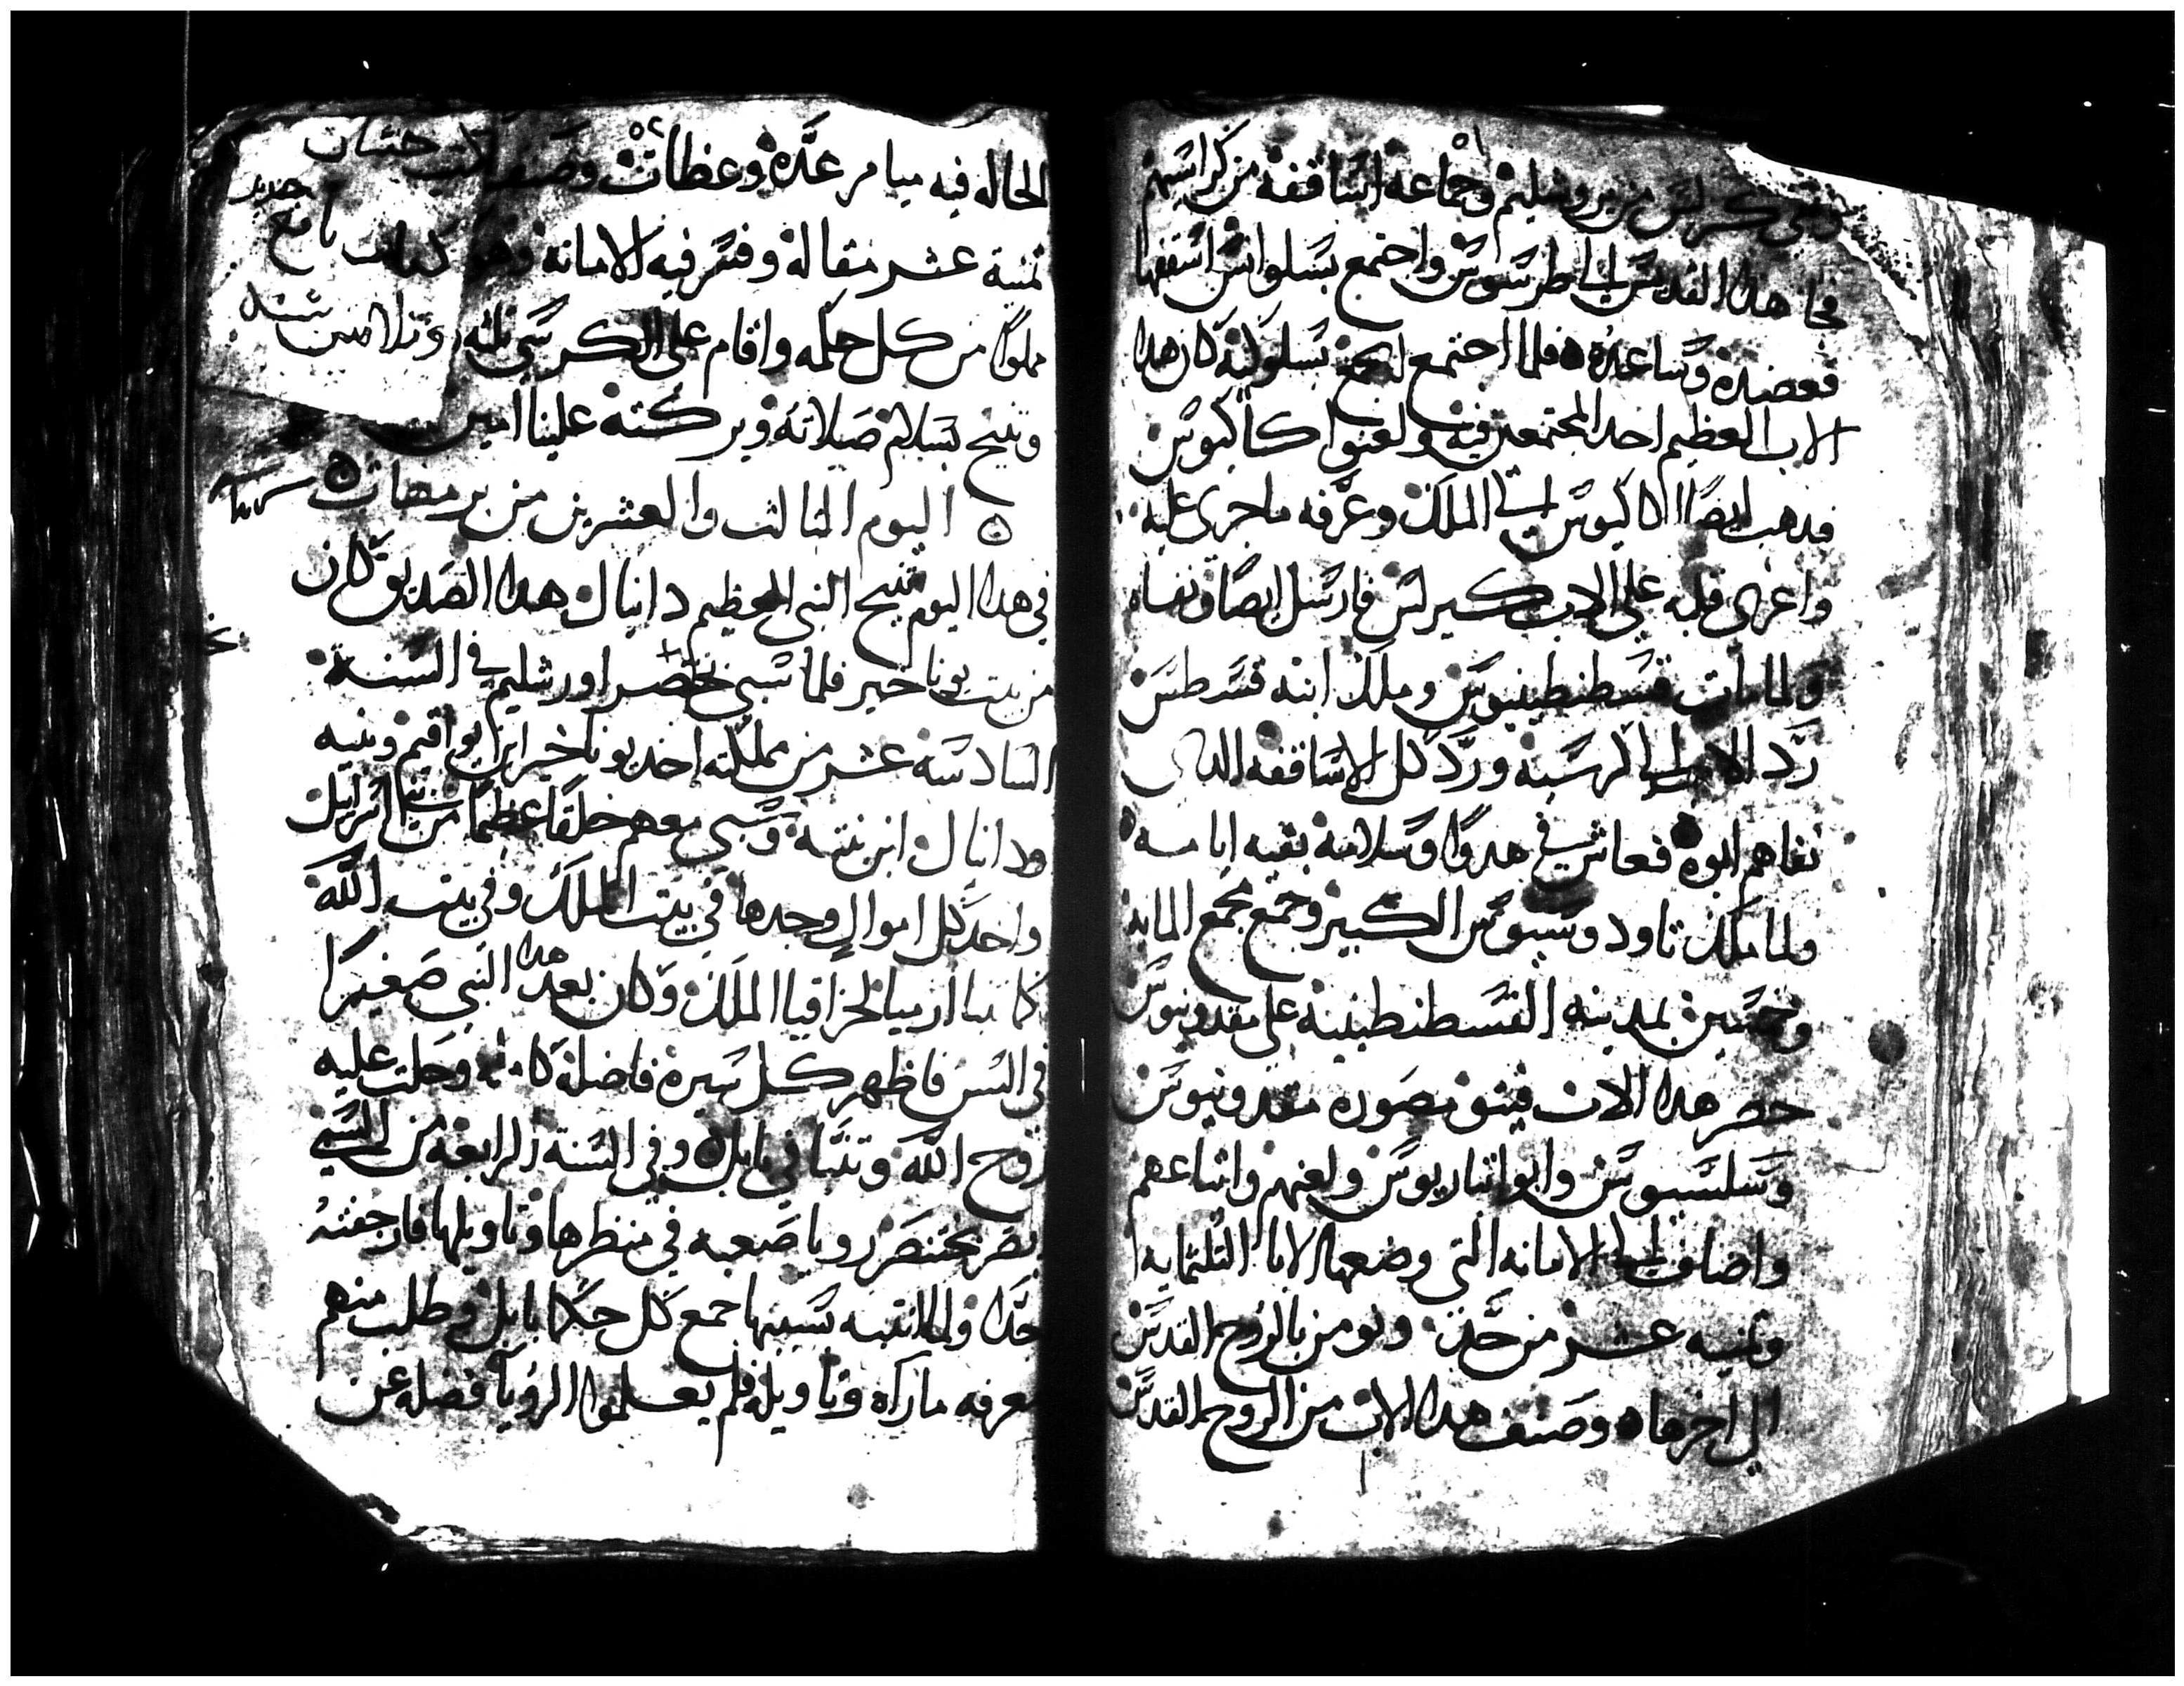 ٥١
ونفى كيرلس من يروشليم وجماعه اساقفه من كراسيهم
فجا هدا القديس الي طرسوس واجتمع بسلوانس اسقفها
فعضده وساعده فلما اجتمع المجمع بسلوكيه كان هدا
الاب العظيم احد المجتمعين فيه ولعنوا كاكيوس
فدهب ايضا اكاكيوس الي الملك وعرفه ما جرى عليه
واغرى قلبه علي الاب كيرلس فارسل ايضا ونفاه
ولما مات قسطنطينوس وملك ابنه قسطس
رد الاب الي كرسيه ورد كل الاساقفه الدى
نفاهم ابوه فعاش في هدوا وسلامة بقيه ايامه
ولما ملك تاودوسيوس الكبير وجمع مجمع المايه
وخمسين بمدينه القسطنطينية علي مقدونيوس
حضر هدا الاب فيه مقدونيوس
وسلسيوس وابوليناريوس ولعنهم واتباعهم
واضاف الي الامانه التي وضعها الابا التلتمايه
وتمنيه عشر من حد ونومن بالروح القدس
الي اخرها وصنف هدا الاب من الروح القدس
٥٢
الحاله فيه ميامر عدة وعظات وصنف
تمنية عشر مقالة وفسر فيه الامانة وهو كتاب نافع
مملوا من كل حكمه واقام علي الكرسي تلته وتلاتين سنه
وتنيح بسلام صلاته وبركته علينا امين
اليوم التالت والعشرين من برمهات
في هدا اليوم تنيح النبي العظيم دانيال هدا الصديق كان
من بيت يوناخير فلما سبي بختنصر اورشليم في السنة
السادسة عشر من مملكته اخد يوناخير ابن يواقيم وبنيه
ودانيال ابن بنته وسبي معهم خلقا عظيما من بني اسراييل
واخد كل اموال وجدها في بيت الملك وفي بيت الله
كما تنبا ارميا لحزاقيا الملك وكان بعد هدا النبي صغيرا
في السن فاظهر كل سيرة فاضلة كامله وحلت عليه
روح الله وتنبا في بابل وفي السنة الرابعة من السبي
ابصر بختنصر رويا صعبه في منظرها وتاويلها فارجفته
جدا ولما انتبه نسيها جمع كل حكما بابل وطلب منهم
معرفه ما راه وتاويله فلم يعلموا الرويا فضله عن